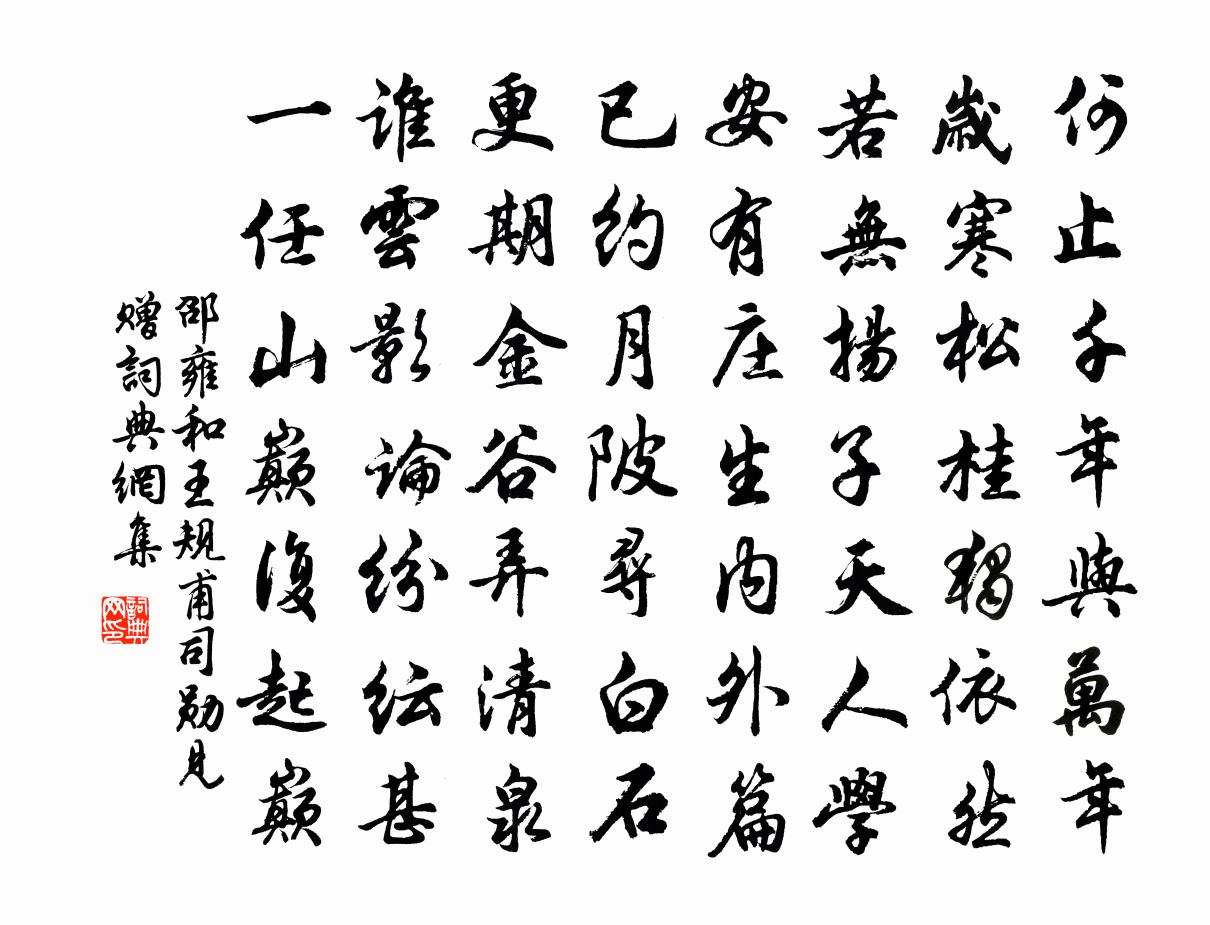 何止千年與萬年
歲寒松桂獨依然
若無揚子天人學
安有庄生內外篇
已約月陂尋白石
更期金谷弄清泉
誰雲影論紛紜甚
一任山巔復起巔
邵雍和王規甫司勛見
贈詞典網集
詞典
网印